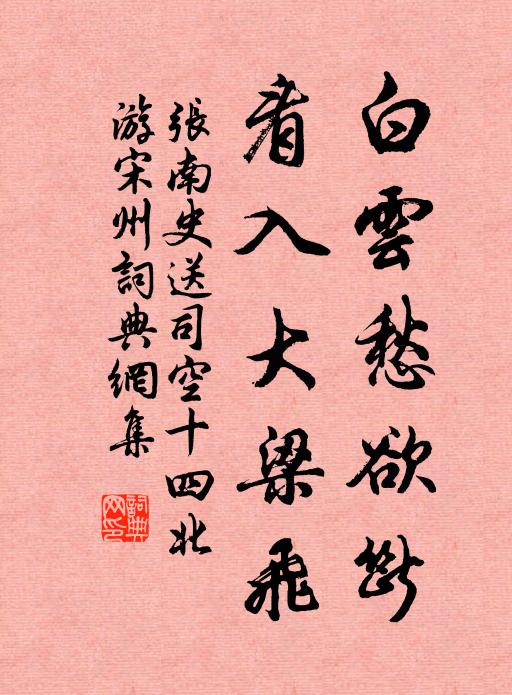 白雲愁欲斷
看入大梁飛
張南史送司空十四北
游宋州詞典網集
詞典
网印